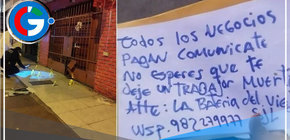 G
TODOS LOS NEGOCIOS
PAGAN COMUNICATE
NO ESPERES QUE TE
DEJE UN TRABAJADOR MUERTO
ATTE: LA BATERIA DEL VIEJO
WSP. 982279977 SJL